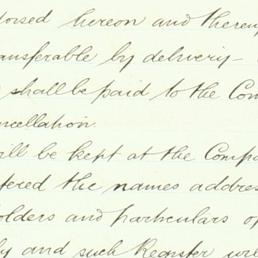 dorsed hereon and thereup
ansferable by delivery -
shall be paid to the Com
ncellation.
ll be kept at the Compa
tered the names address
holders and particulars of
ly and such Register wil